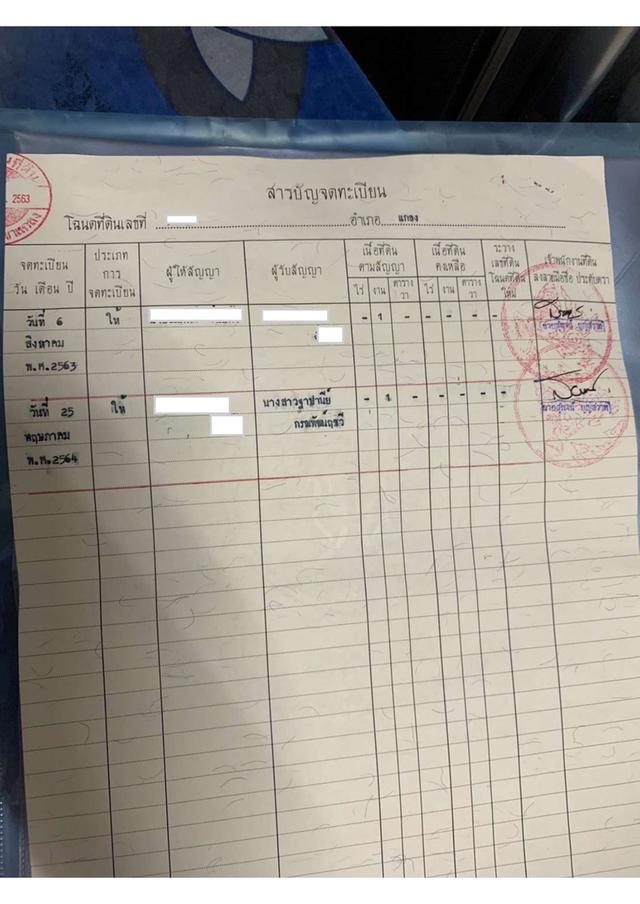 2563
สารบัญจดทะเบียน
โฉนดที่ดินเลขที่ อำเภอ แกลง
จดทะเบียน วัน เดือน ปี
ประเภท การ จดทะเบียน
ผู้ให้สัญญา
ผู้รับสัญญา
เนื้อที่ดิน ตามสัญญา
ไร่ งาน ตาราง วา
เนื้อที่ดิน คงเหลือ
ไร่ งาน ตาราง วา
ระวาง เลขที่ดิน โฉนดที่ดิน ใหม่
เจ้าพนักงานที่ดิน ลงลายมือชื่อ ประทับตรา
วันที่ 6 ให้ - 1 - - - - -
สิงหาคม
พ.ศ.2563
วันที่ 25 ให้ นางสาวฐาปานีย์ - 1 - - - - -
พฤษภาคม
พ.ศ.2564